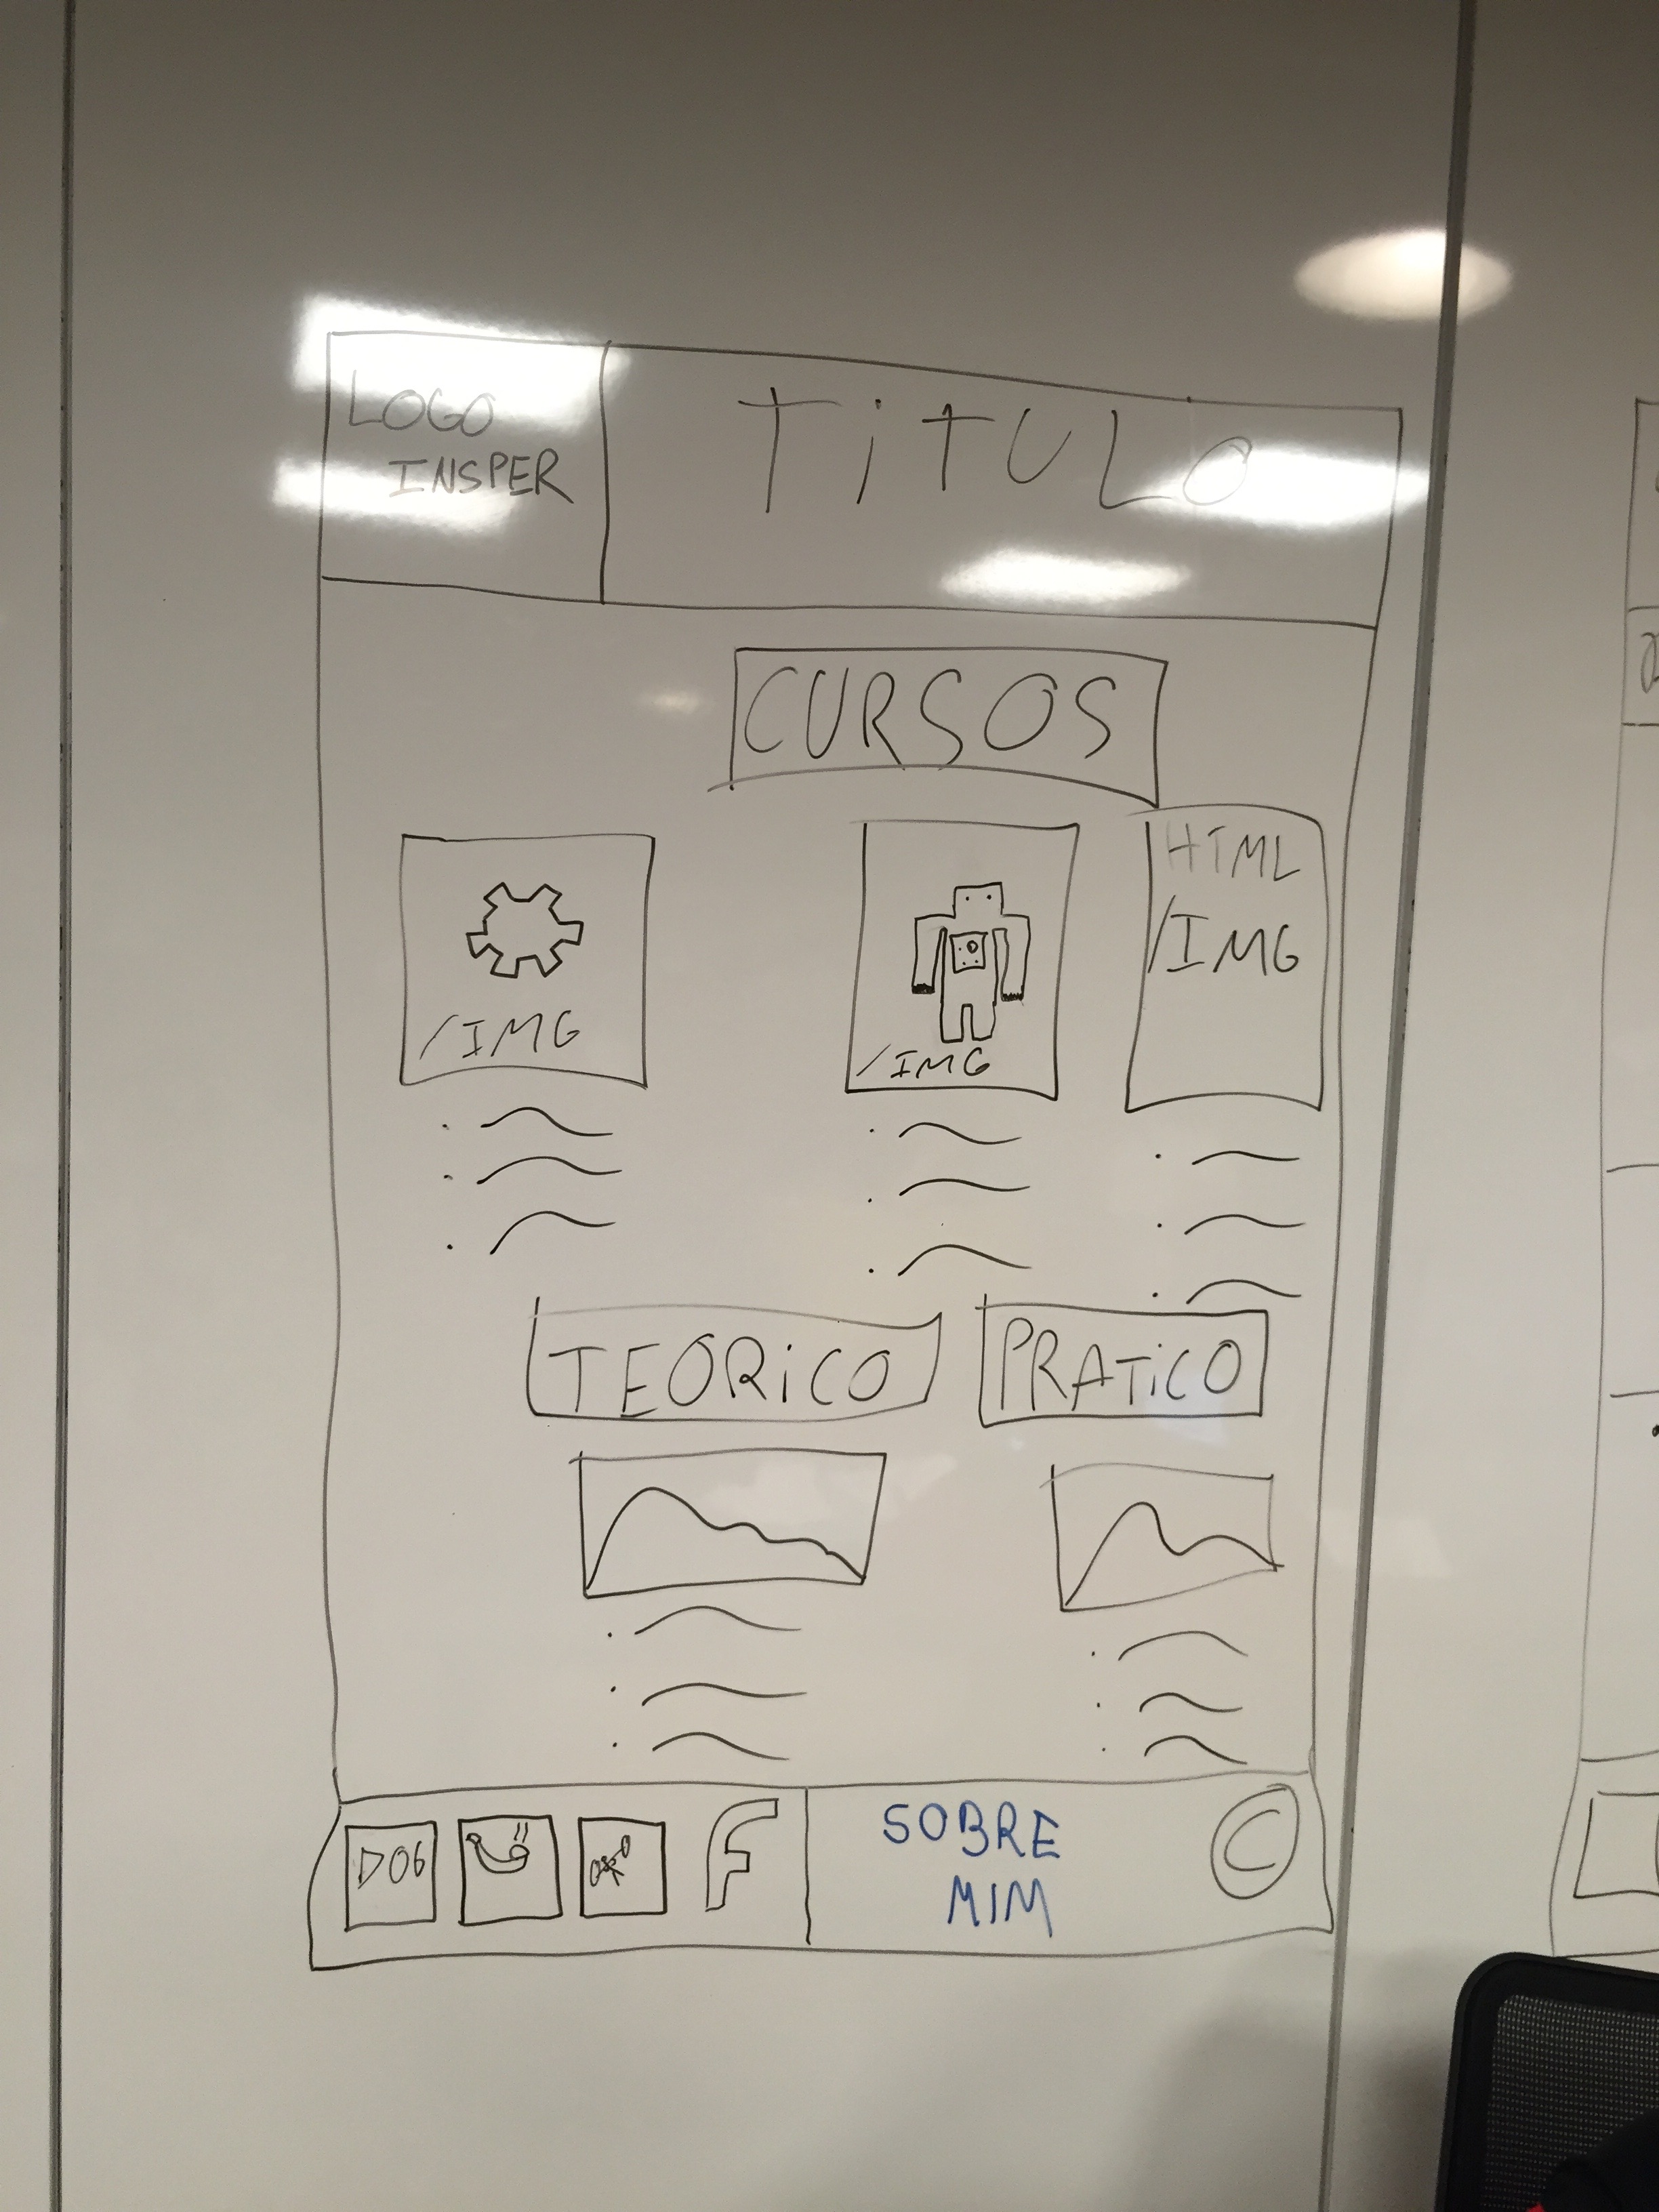 LOGO
INSPER
TiTULO
CURSOS
/IMG
/IMG
HTML
/IMG
TEÓRiCO
PRATiCO
DOG
F
SOBRE
MIM
©